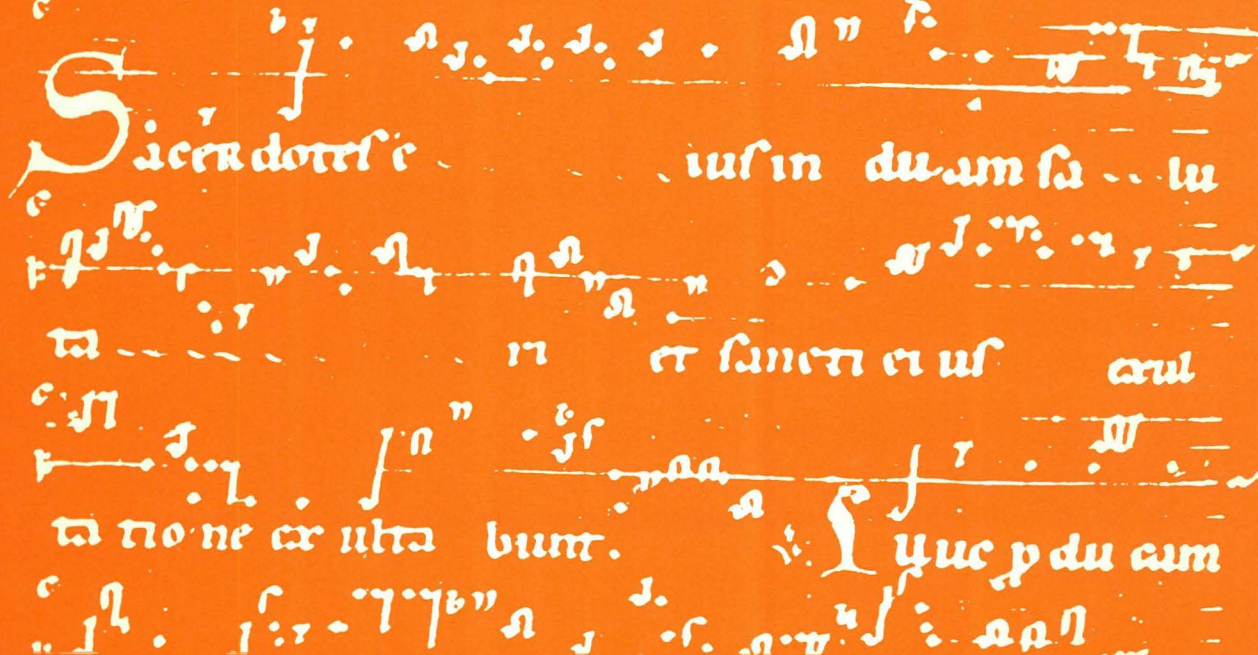 Sacerdotes e iusin duam sa lu
ta ri et sancti ei us exul
ta tio ne ex ulta bunt. Illuc p̱ du cam